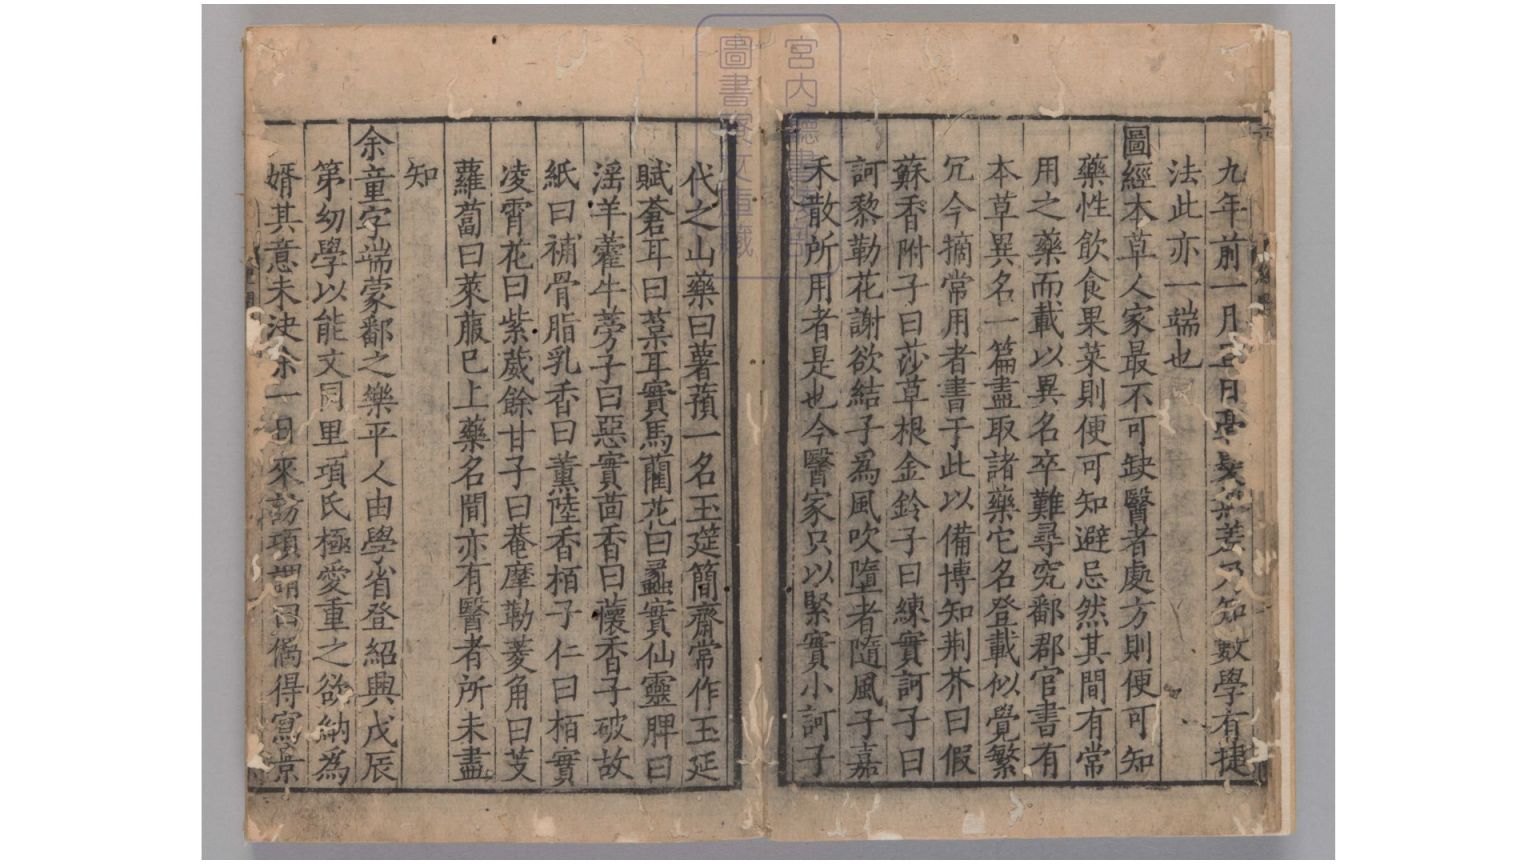 九年前一月五日
知數學有捷
法此亦一端也
圖經本草人家最不可缺醫者處方則便可知
藥性飲食果菜則便可知避忌然其間有常
用之藥而載以異名卒難尋究鄱郡官書有
本草異名一篇盡取諸藥它名登載似覺繁
冗今摘常用者書于此以備博知荆芥曰假
蘇香附子曰莎草根金鈴子曰練實訶子曰
訶黎勒花謝欲結子爲風吹墮者隨風子嘉
禾散所用者是也今醫家只以緊實小訶子
代之山藥曰薯蕷一名玉筵簡齋常作玉延
賦蒼耳曰葈耳實馬藺花曰蠡實仙靈脾曰
淫羊藿牛蒡子曰惡實茴香曰蘹香子破故
紙曰補骨脂乳香曰薰陸香栢子仁曰栢實
凌霄花曰紫葳餘甘子曰菴摩勒菱角曰芰
蘿蔔曰萊菔已上藥名間亦有醫者所未盡
知
余童字端蒙鄱之樂平人由學省登紹興戊辰
第幼學以能文同里項氏極愛重之欲納爲
婿其意未決余一日來訪項謂曰偶得寫景
宮内廳書陵部
圖書寮文庫藏